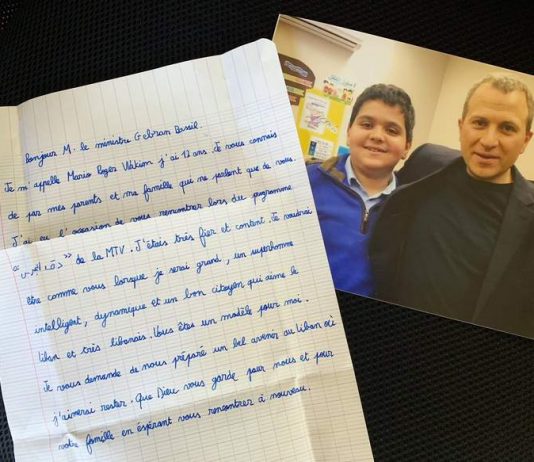 Bonjour M. le ministre Gebran Bassil.
Je m'appelle Mario Roger Wakim j'ai 12 ans. Je vous connais
de par mes parents et ma famille qui ne parlent que de vous.
J'ai eu l'occasion de vous rencontrer lors du programme
de la MTV. J'étais très fier et content. Je voudrais
être comme vous lorsque je serai grand, un superhomme
intelligent, dynamique et un bon citoyen qui aime le
liban et très libanais. Vous êtes un modèle pour moi.
Je vous demande de nous préparé un bel avenir au Liban où
j'aimerai rester. Que Dieu vous garde pour nous et pour
votre famille en espérant vous rencontrer à nouveau.